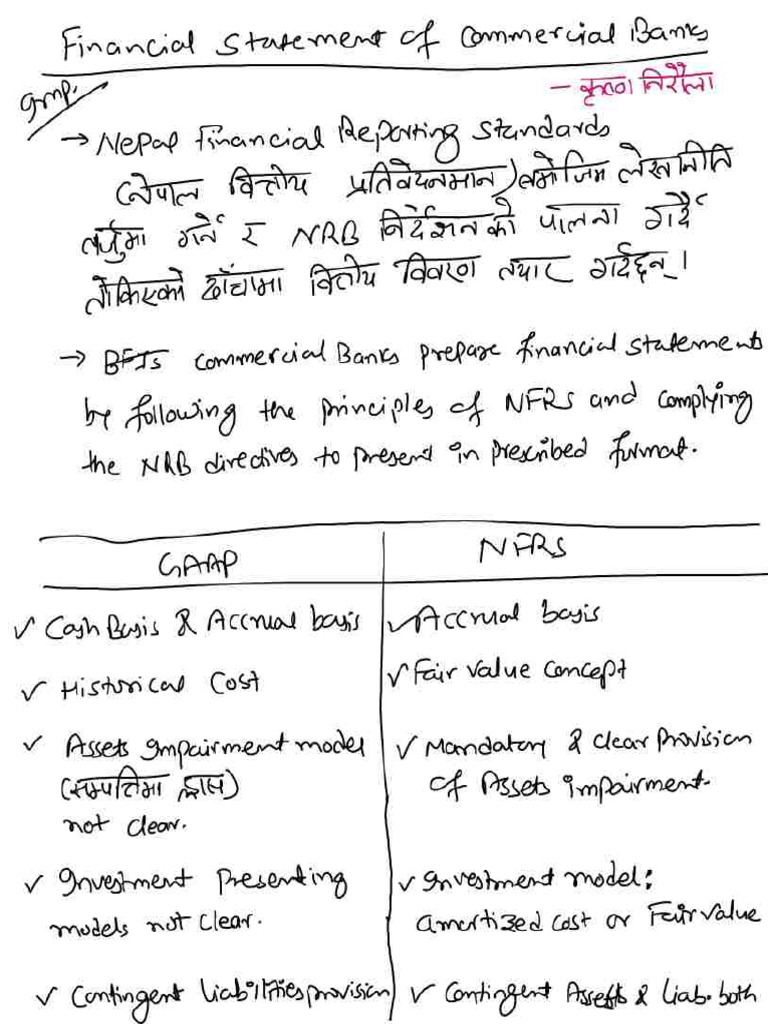 Financial Statement of Commercial Banks
Imp.
- कृष्ण निरौला
→ Nepal Financial Reporting Standards
(नेपाल वित्तीय प्रतिवेदनमान) बमोजिम लेखानीति
तर्जुमा गर्ने र NRB निर्देशनको पालना गर्दै
तोकिएको ढाँचामा वित्तीय विवरण तयार गर्दछन् ।
→ BFIs commercial Banks prepare financial statements
by following the principles of NFRS and complying
the NRB directives to present in prescribed format.
GAAP
NFRS
✓ Cash Basis & Accrual basis
✓ Accrual basis
✓ Historical Cost
✓ Fair value concept
✓ Assets Impairment model
(सम्पत्तिमा ह्रास)
not clear.
✓ Mandatory & clear provision
of Assets impairment.
✓ Investment Presenting
models not clear.
✓ Investment model:
amortized cost or Fair value
✓ Contingent liabilities provision
✓ Contingent Assets & Liab. both